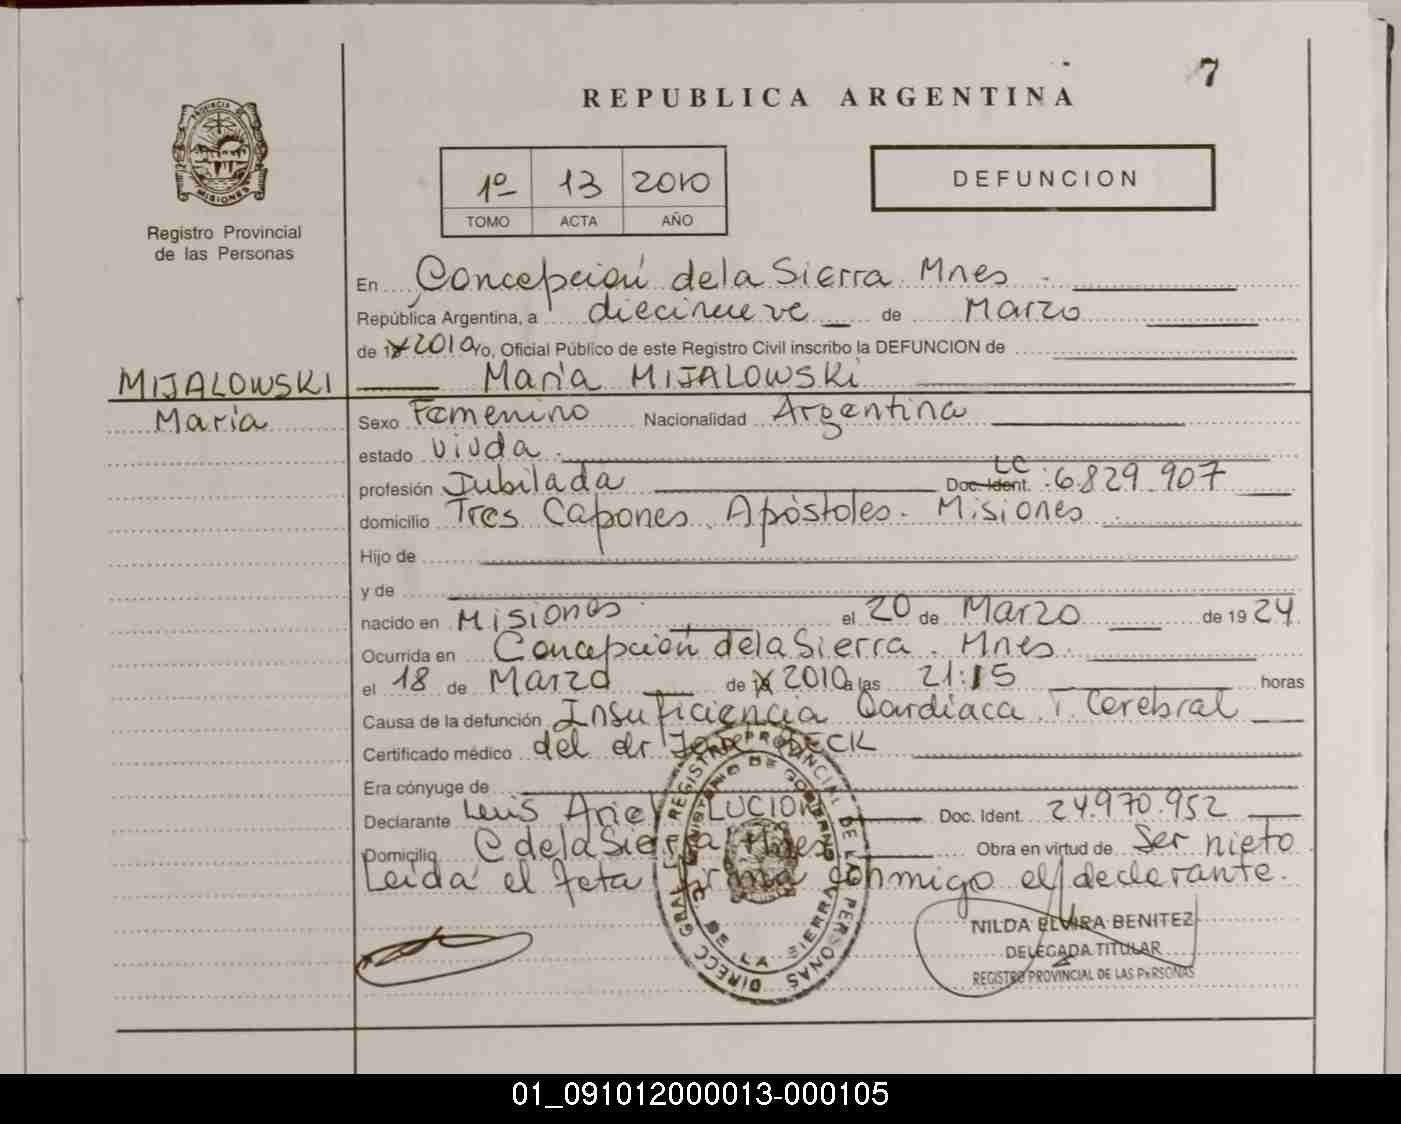 7
REPUBLICA ARGENTINA
1º 13 2010
TOMO ACTA AÑO
DEFUNCION
PROVINCIA DE MISIONES
Registro Provincial
de las Personas
En Concepción de la Sierra Mnes
República Argentina, a diecinueve de Marzo
de 2010 Yo, Oficial Público de este Registro Civil inscribo la DEFUNCION de
MIJALOWSKI María MIJALOWSKI
María
Sexo Femenino Nacionalidad Argentina
estado viuda
LC
profesión Jubilada Doc. Ident. 6829.907
domicilio Tres Capones. Apóstoles. Misiones
Hijo de
y de
nacido en Misiones el 20 de Marzo de 1924
Ocurrida en Concepción de la Sierra. Mnes.
el 18 de Marzo de 2010 a las 21:15 horas
Causa de la defunción Insuficiencia Cardíaca. Cerebral
Certificado médico del dr
Era cónyuge de
Declarante Luis Ariel Doc. Ident. 24.970.952
Domicilio C de la Sierra Mnes Obra en virtud de Ser nieto
Leida el firma conmigo el declarante.
DIRECC GRAL REGISTRO PROVINCIAL DE LAS PERSONAS
MINISTERIO DE GOBIERNO
C. DE LA SIERRA
NILDA ELVIRA BENITEZ
DELEGADA TITULAR
REGISTRO PROVINCIAL DE LAS PERSONAS
01_091012000013-000105